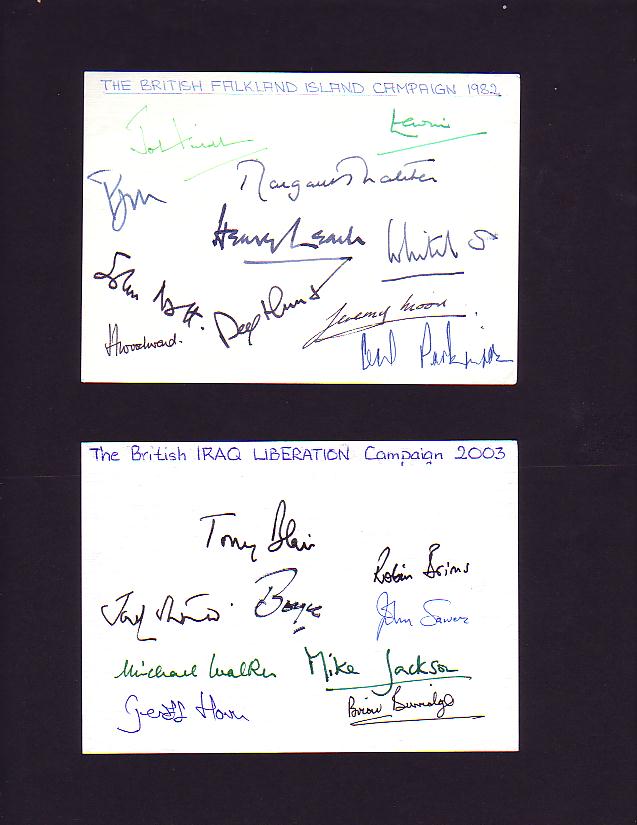 THE BRITISH FALKLAND ISLAND CAMPAIGN 1982
Lewin
Margaret Thatcher
Henry Leach
John Nott.
Jeremy Moore
JWoodward.
Cecil Parkinson
The British IRAQ LIBERATION Campaign 2003
Tony Blair
Robin Brims
Boyce
John Sawers
Michael Walker
Mike Jackson
Geoff Hoon
Brian Burridge